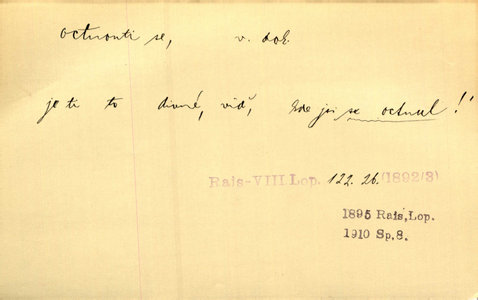 octnouti se, v. dok.
je ti to divné, viď, kde jsi se octnul!"
Rais-VIII.Lop. 122. 26. (1892/3)
1895 Rais,Lop.
1910 Sp.8.